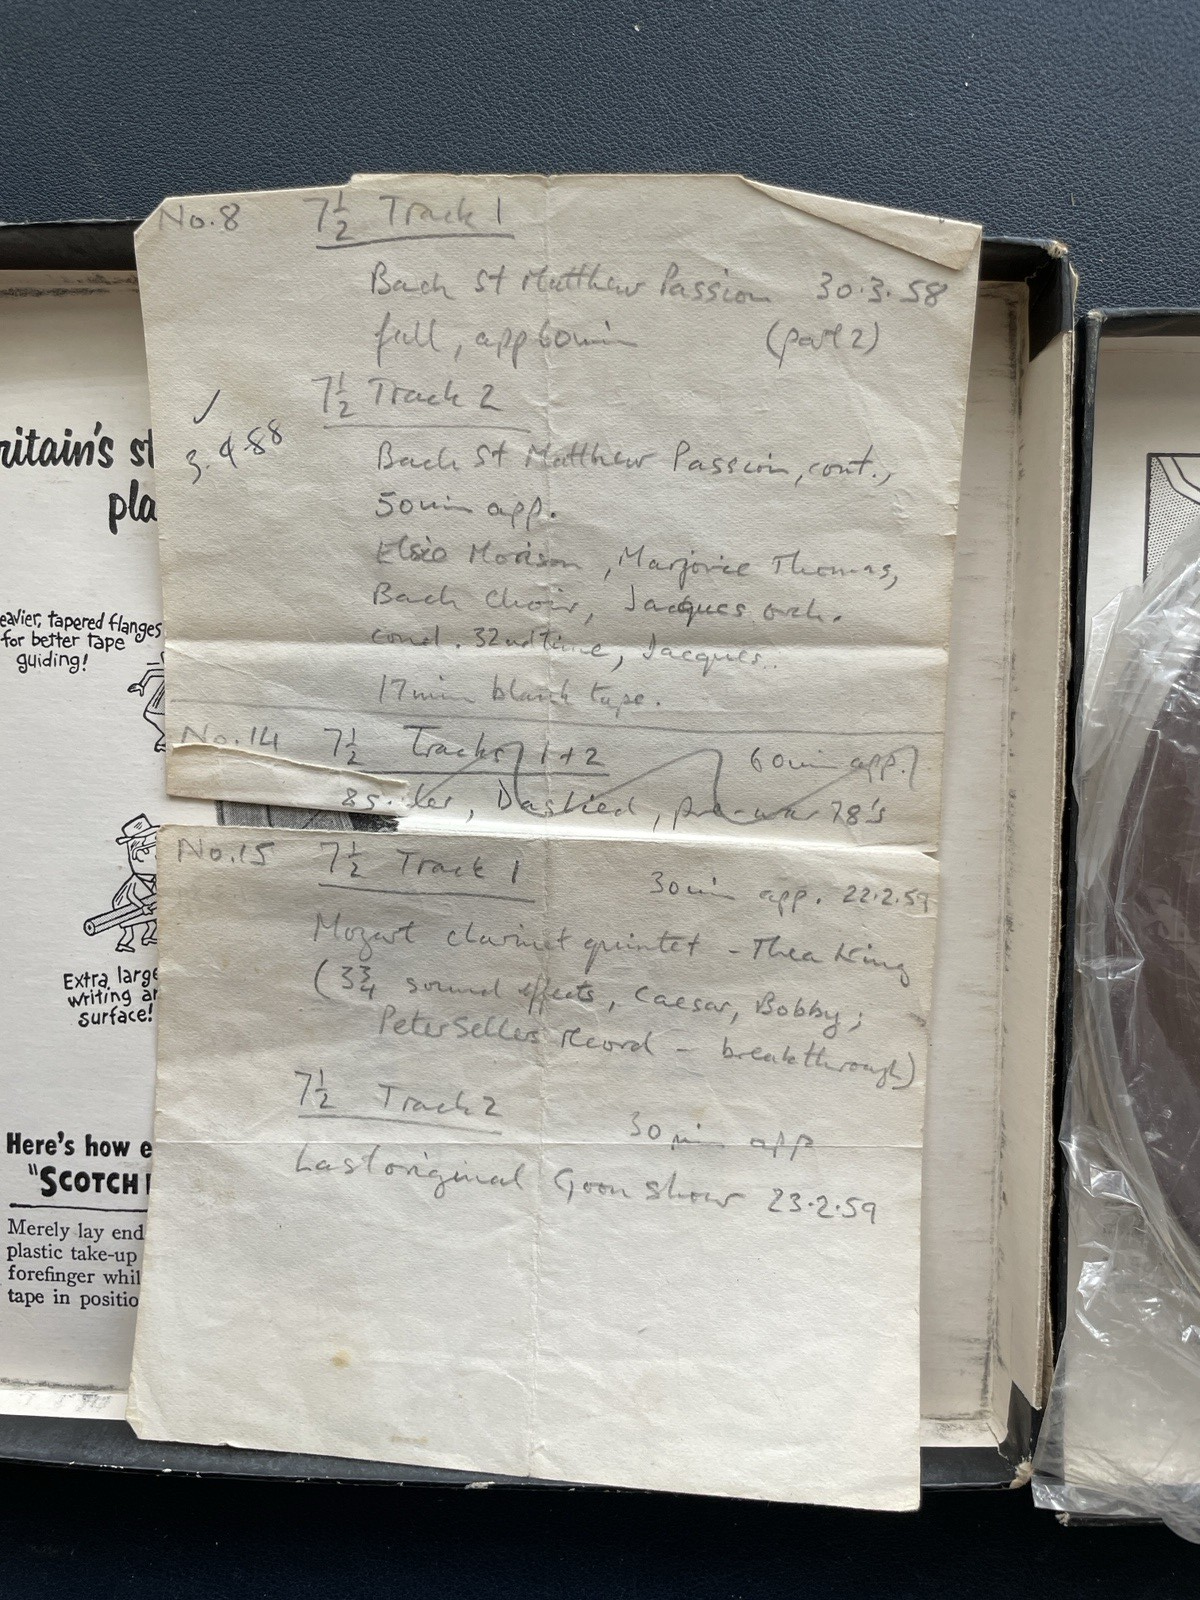 No.8 7½ Track 1
Bach St Matthew Passion 30.3.58
full, app 60min (part 2)
7½ Track 2
✓
3.4.88
Bach St Matthew Passion, cont.,
50min app.
Elsie Morison, Marjorie Thomas,
Bach Choir, Jacques orch.
cond. 32nd time, Jacques..
17min blank tape.
No.14 7½ Tracks 1+2 60min app.
, pre-war 78's
No.15 7½ Track 1 30min app. 22.2.59
Mozart clarinet quintet - Thea King
(3¾ sound effects, Caesar, Bobby;
Peter Sellers record - breakthrough)
7½ Track 2 30min app
Last original Goon show 23.2.59
ritain's st
pla
eavier, tapered flanges
for better tape
guiding!
Extra large
writing ar
surface!
Here's how e
"SCOTCH
Merely lay end
plastic take-up
forefinger whil
tape in positio